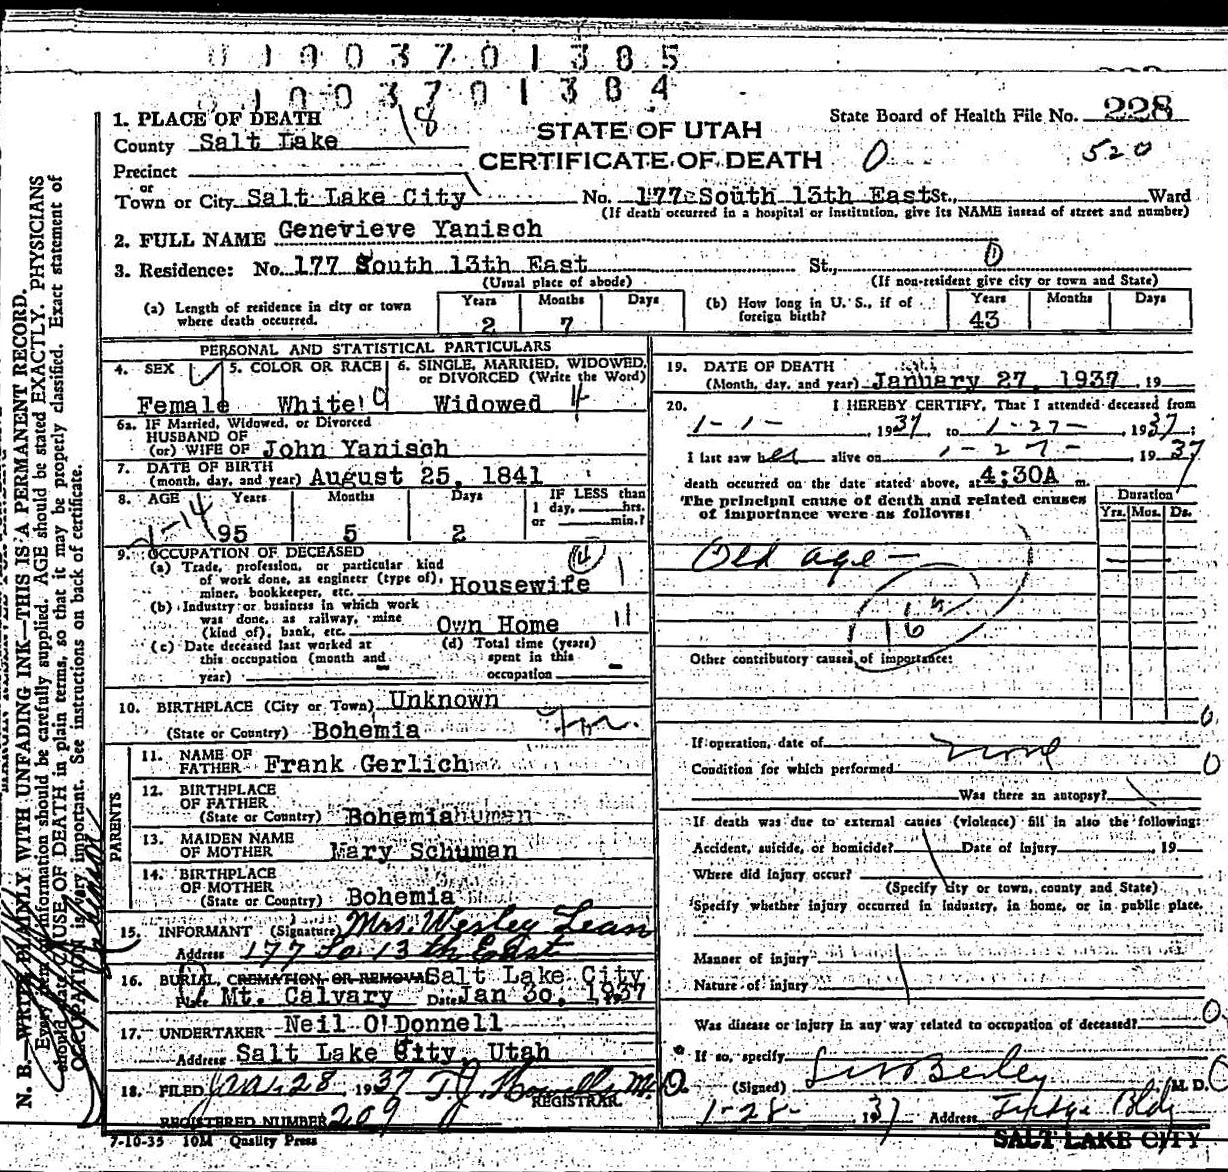 0 1 0 0 3 7 0 1 3 8 5
0 1 0 0 3 7 0 1 3 8 4
1. PLACE OF DEATH 18
County Salt Lake
STATE OF UTAH
CERTIFICATE OF DEATH 0
State Board of Health File No. 228
520
Precinct
or
Town or City Salt Lake City No. 177 South 13th East St., Ward
(If death occurred in a hospital or institution, give its NAME instead of street and number)
2. FULL NAME Genevieve Yanisch
3. Residence: No. 177 South 13th East St.,
(Usual place of abode) (If non-resident give city or town and State)
(a) Length of residence in city or town where death occurred. Years 2 Months 7 Days
(b) How long in U. S., if of foreign birth? Years 43 Months Days
PERSONAL AND STATISTICAL PARTICULARS
4. SEX 5. COLOR OR RACE 6. SINGLE, MARRIED, WIDOWED, or DIVORCED (Write the Word)
Female White 0 Widowed 4
6a. IF Married, Widowed, or Divorced
HUSBAND OF
(or) WIFE OF John Yanisch
7. DATE OF BIRTH
(month, day, and year) August 25, 1841
8. AGE Years Months Days IF LESS than
1 day, hrs.
or min.?
1-14 95 5 2
9. OCCUPATION OF DECEASED
(a) Trade, profession, or particular kind
of work done, as engineer (type of),
miner, bookkeeper, etc. Housewife
(b) Industry or business in which work
was done, as railway, mine
(kind of), bank, etc. Own Home 11
(c) Date deceased last worked at
this occupation (month and
year)
(d) Total time (years)
spent in this
occupation
10. BIRTHPLACE (City or Town) Unknown
(State or Country) Bohemia
PARENTS
11. NAME OF
FATHER Frank Gerlich
12. BIRTHPLACE
OF FATHER
(State or Country) Bohemia
13. MAIDEN NAME
OF MOTHER Mary Schuman
14. BIRTHPLACE
OF MOTHER
(State or Country) Bohemia
15. INFORMANT (Signature) Mrs. Wesley Lean
Address 177 So. 13th East
16. BURIAL, CREMATION, OR REMOVAL Salt Lake City
Place Mt. Calvary Date Jan 30, 1937
17. UNDERTAKER Neil O'Donnell
Address Salt Lake City, Utah
18. FILED Jan. 28, 1937 T.J. Howells M.D.
REGISTRAR
REGISTERED NUMBER 209
7-10-35 10M Quality Press
19. DATE OF DEATH
(Month, day, and year) January 27, 1937, 19
20. I HEREBY CERTIFY, That I attended deceased from
1-1- 1937 to 1-27- 1937;
I last saw her alive on 1-27- 1937
death occurred on the date stated above, at 4:30A m.
The principal cause of death and related causes
of importance were as follows:
Duration
Yrs. Mos. Ds.
Old age —
Other contributory causes of importance:
If operation, date of none
Condition for which performed 0
Was there an autopsy?
If death was due to external causes (violence) fill in also the following:
Accident, suicide, or homicide? Date of injury , 19
Where did injury occur?
(Specify city or town, county and State)
Specify whether injury occurred in industry, in home, or in public place.
Manner of injury
Nature of injury
Was disease or injury in any way related to occupation of deceased?
If so, specify
(Signed) M. D.
1-28- 1937 Address Judge Bldg
SALT LAKE CITY
N. B.—WRITE PLAINLY WITH UNFADING INK—THIS IS A PERMANENT RECORD.
Every item of information should be carefully supplied. AGE should be stated EXACTLY. PHYSICIANS
should state CAUSE OF DEATH in plain terms, so that it may be properly classified. Exact statement of
OCCUPATION is very important. See instructions on back of certificate.